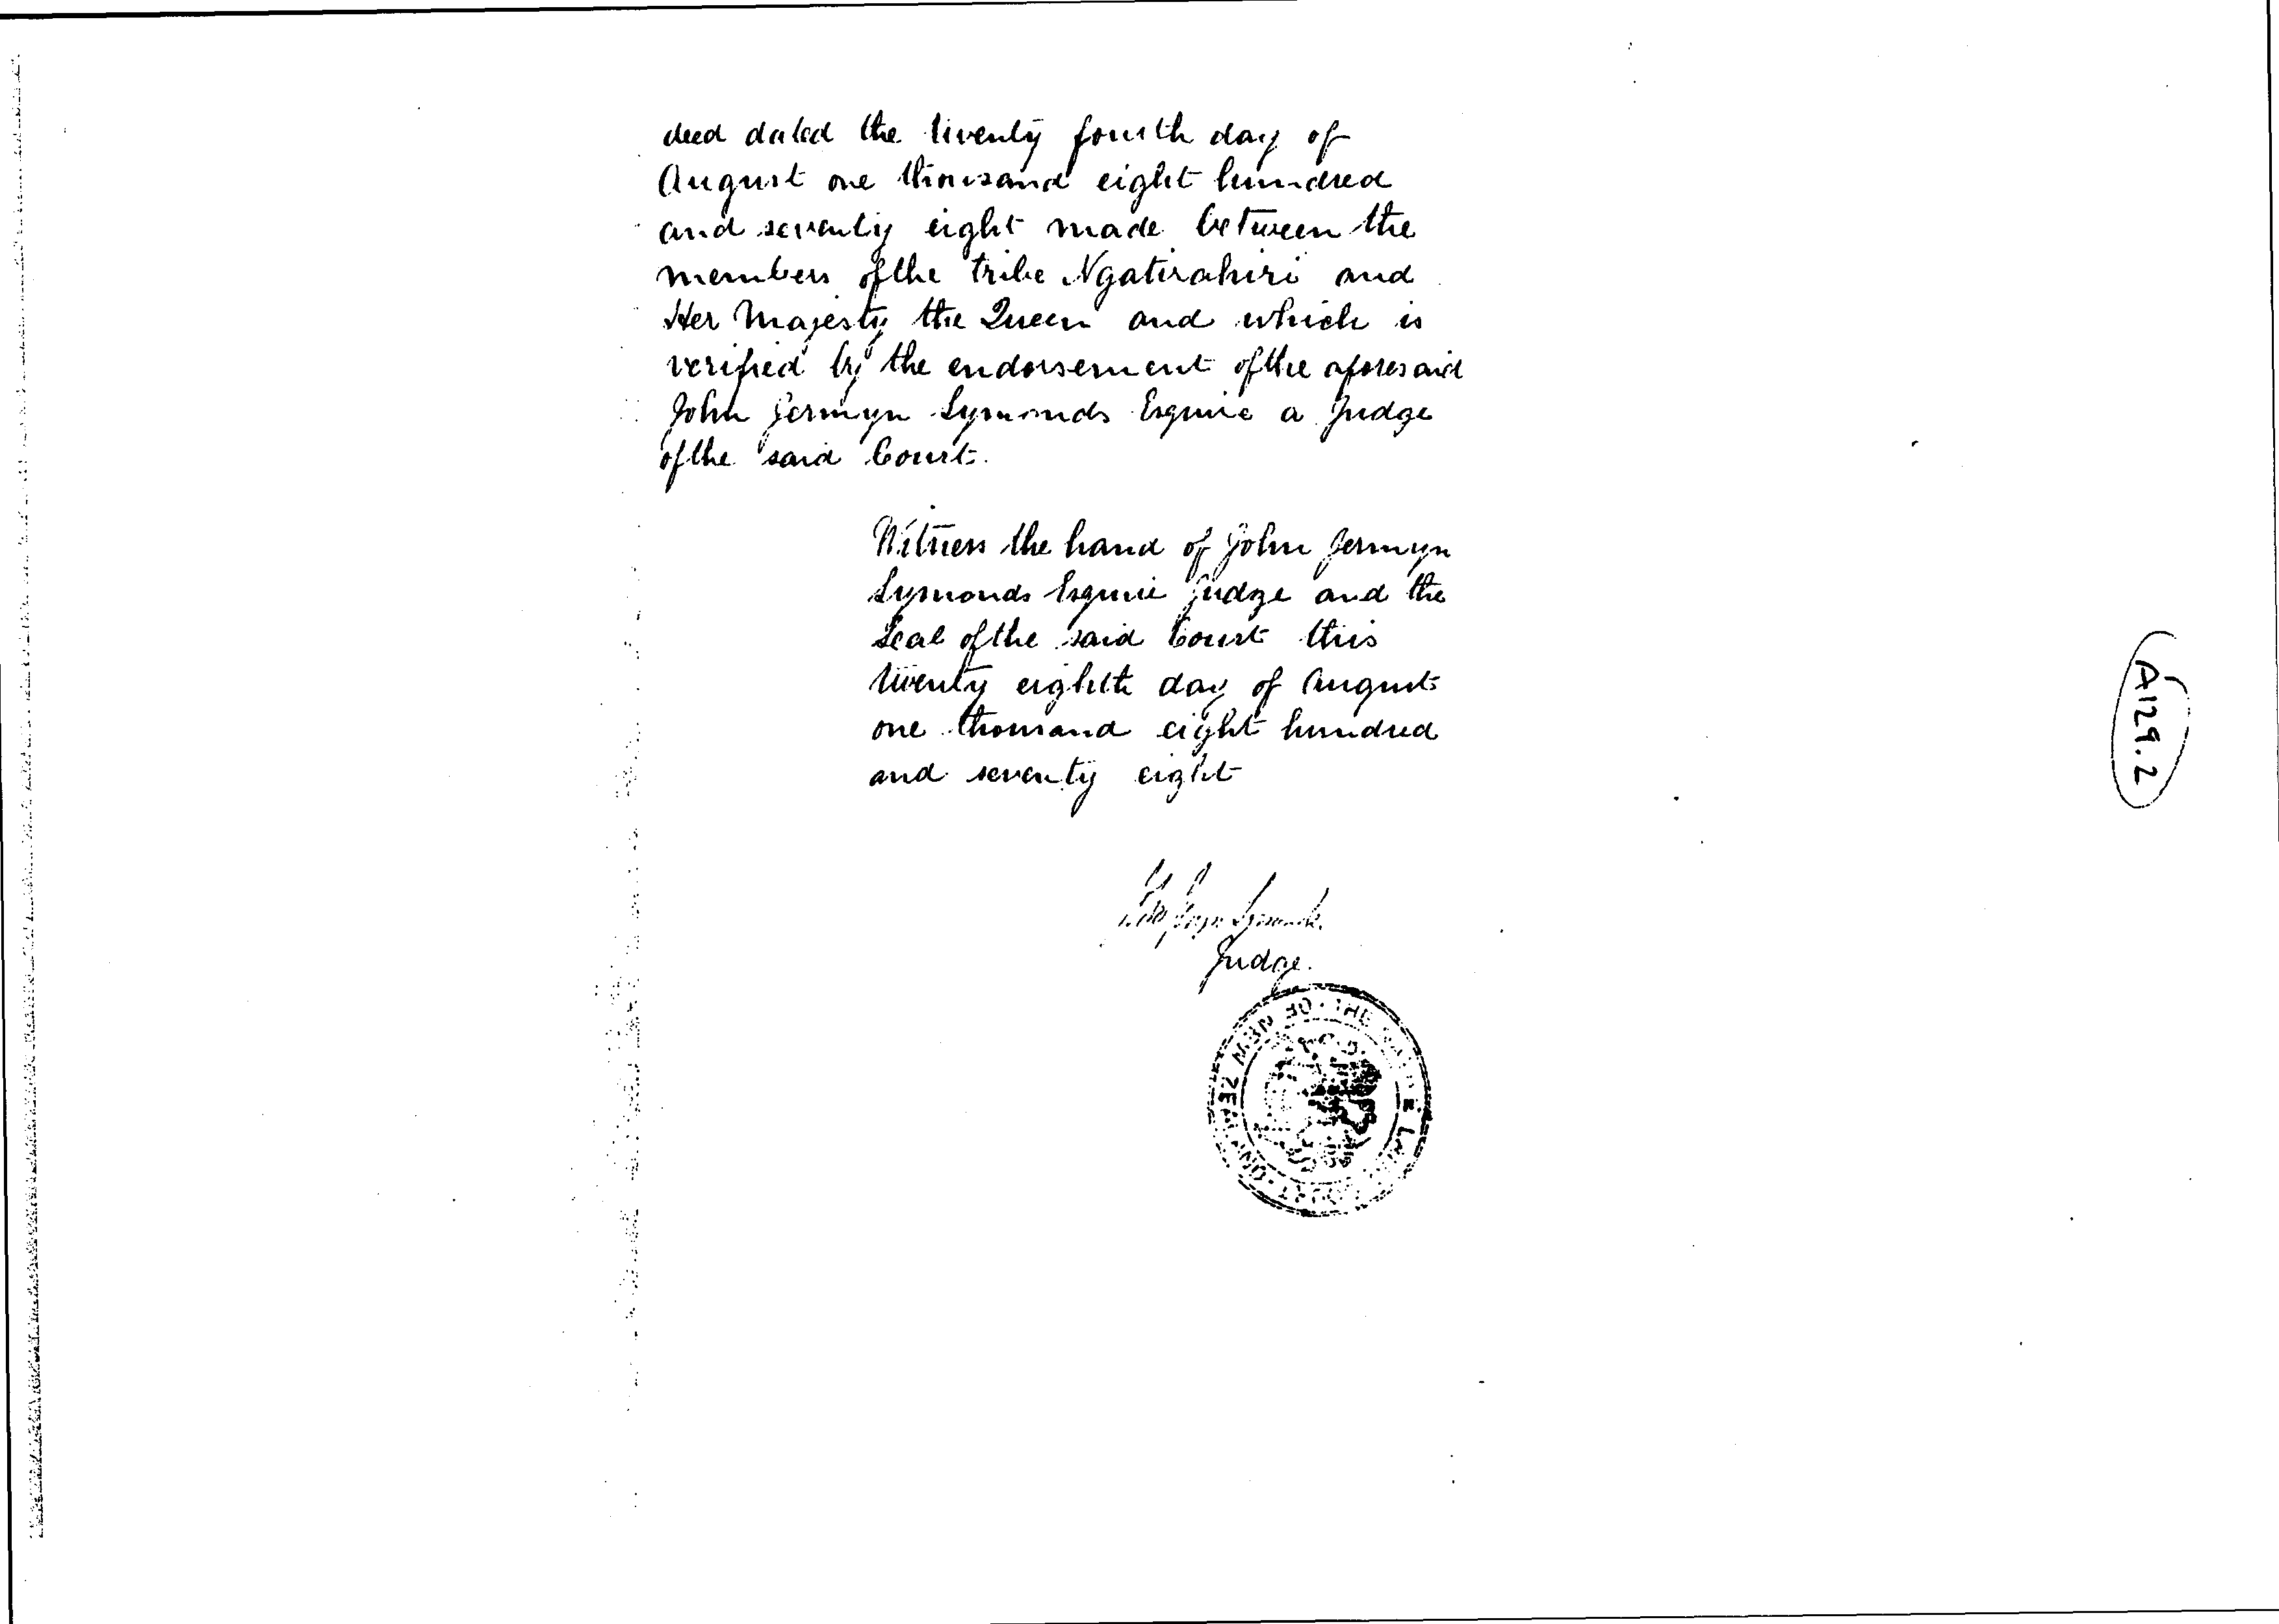 deed dated the twenty fourth day of
August one thousand eight hundred
and seventy eight made between the
members of the tribe Ngatirahiri and
Her Majesty the Queen and which is
verified by the endorsement of the aforesaid
John Jermyn Symonds Esquire a Judge
of the said Court.
Witness the hand of John Jermyn
Symonds Esquire Judge and the
Seal of the said Court this
twenty eighth day of August
one thousand eight hundred
and seventy eight
John Jermyn Symonds.
Judge.
OF · THE NATIVE LAND COURT · OF NEW ZEALAND
A129.2